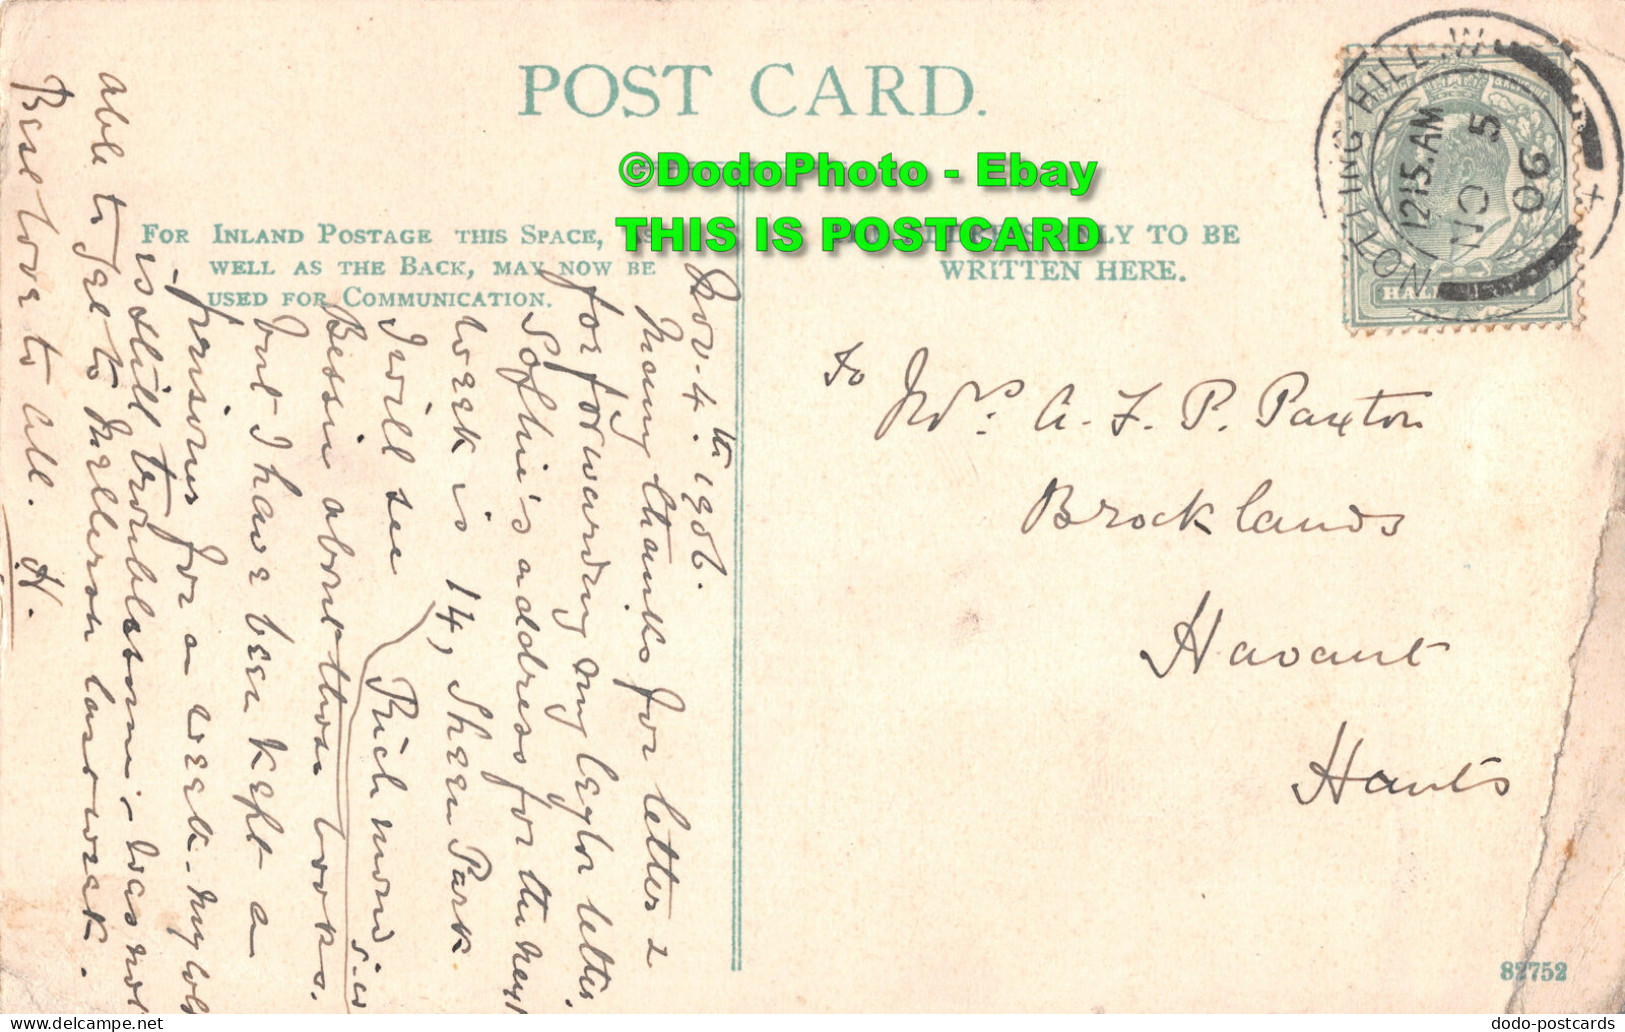 POST CARD.
©DodoPhoto - Ebay
THIS IS POSTCARD
FOR INLAND POSTAGE THIS SPACE, AS
WELL AS THE BACK, MAY NOW BE
USED FOR COMMUNICATION.
LY TO BE
WRITTEN HERE.
NOTTING HILL. W
12 15. AM
NO 5
06
HALF PENNY
To
Mrs. A. F. P. Paxton
Brocklands
Havant
Hants
Nov. 4th 1906.
Many thanks for letter &
for forwarding my letter.
Sophie's address for the next
week is 14, Sheen Park
Richmond S.W
I will see
Bessie about those books.
but I have been kept a
prisoner for a week. My cold
is still troublesome. I was not
able to go to last week.
Best love to all. H.
82752
dodo-postcards